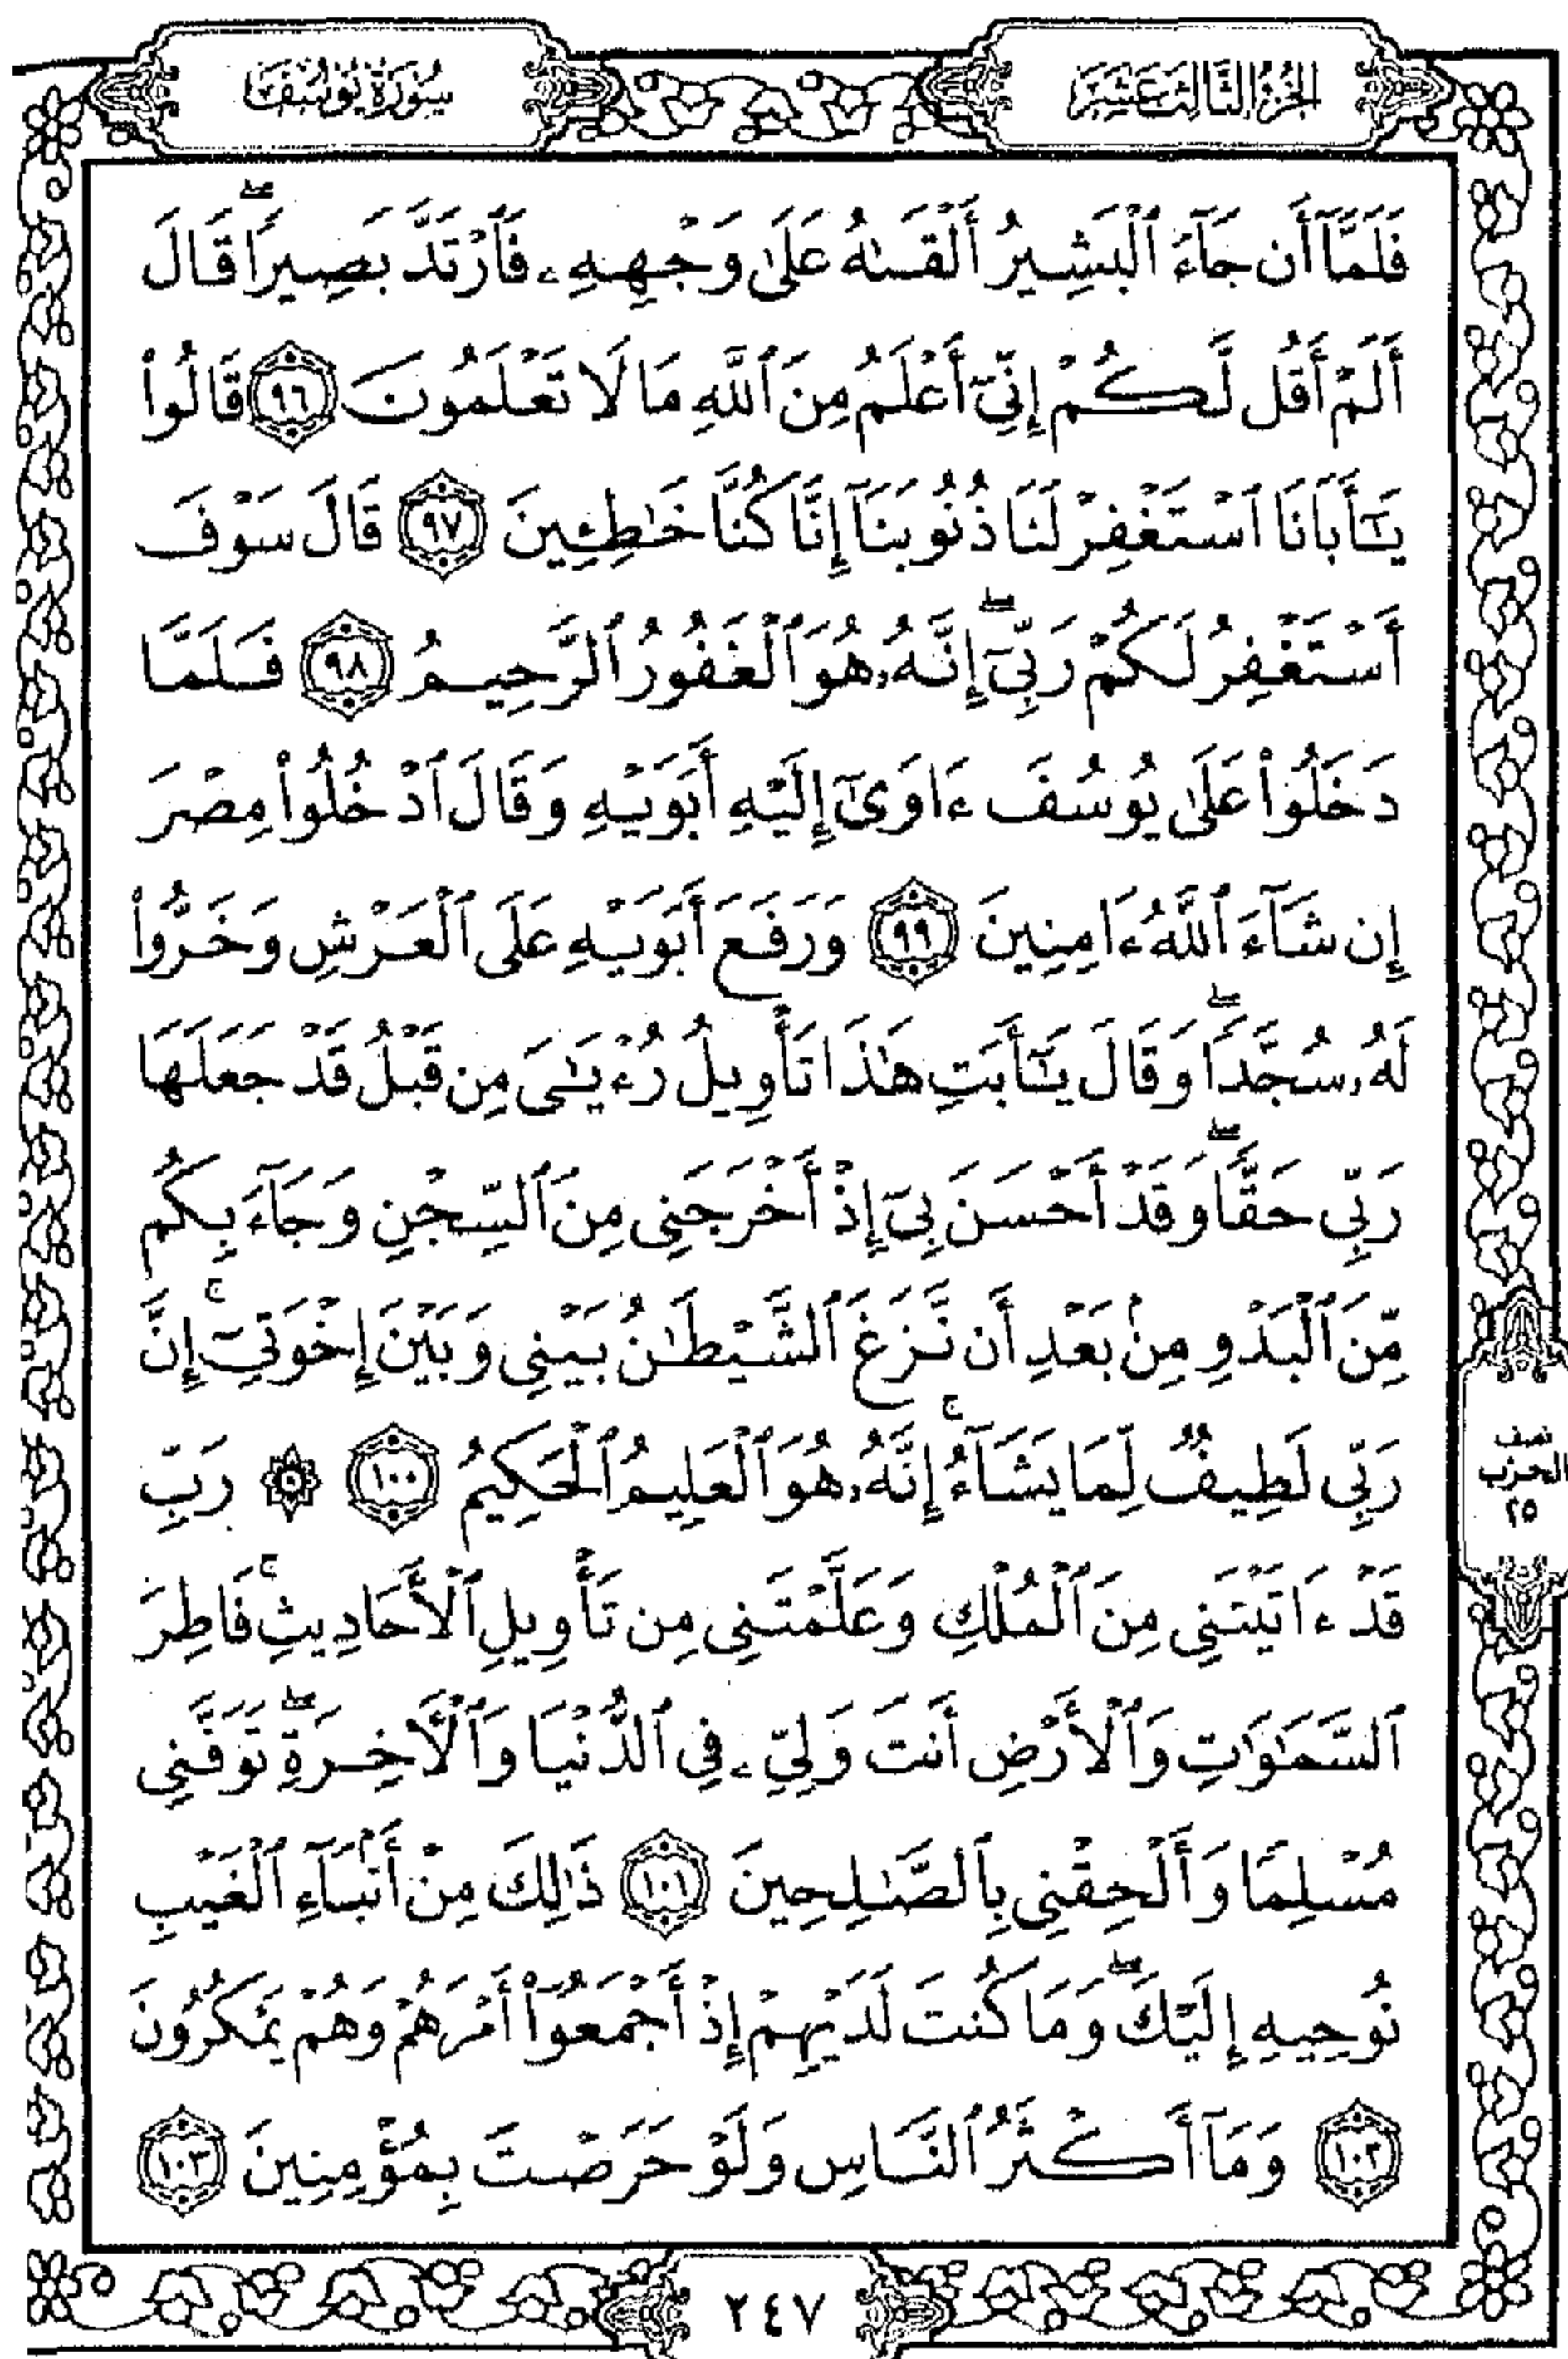 الجزء الثالث عشر
سورة يوسف
فَلَمَّآ أَن جَآءَ ٱلْبَشِيرُ أَلْقَىٰهُ عَلَىٰ وَجْهِهِۦ فَٱرْتَدَّ بَصِيرًا ۖ قَالَ
أَلَمْ أَقُل لَّكُمْ إِنِّىٓ أَعْلَمُ مِنَ ٱللَّهِ مَا لَا تَعْلَمُونَ ٩٦ قَالُوا۟
يَـٰٓأَبَانَا ٱسْتَغْفِرْ لَنَا ذُنُوبَنَآ إِنَّا كُنَّا خَـٰطِـِٔينَ ٩٧ قَالَ سَوْفَ
أَسْتَغْفِرُ لَكُمْ رَبِّىٓ ۖ إِنَّهُۥ هُوَ ٱلْغَفُورُ ٱلرَّحِيمُ ٩٨ فَلَمَّا
دَخَلُوا۟ عَلَىٰ يُوسُفَ ءَاوَىٰٓ إِلَيْهِ أَبَوَيْهِ وَقَالَ ٱدْخُلُوا۟ مِصْرَ
إِن شَآءَ ٱللَّهُ ءَامِنِينَ ٩٩ وَرَفَعَ أَبَوَيْهِ عَلَى ٱلْعَرْشِ وَخَرُّوا۟
لَهُۥ سُجَّدًا ۖ وَقَالَ يَـٰٓأَبَتِ هَـٰذَا تَأْوِيلُ رُءْيَـٰىَ مِن قَبْلُ قَدْ جَعَلَهَا
رَبِّى حَقًّا ۖ وَقَدْ أَحْسَنَ بِىٓ إِذْ أَخْرَجَنِى مِنَ ٱلسِّجْنِ وَجَآءَ بِكُم
مِّنَ ٱلْبَدْوِ مِنۢ بَعْدِ أَن نَّزَغَ ٱلشَّيْطَـٰنُ بَيْنِى وَبَيْنَ إِخْوَتِىٓ ۚ إِنَّ
رَبِّى لَطِيفٌ لِّمَا يَشَآءُ ۚ إِنَّهُۥ هُوَ ٱلْعَلِيمُ ٱلْحَكِيمُ ١٠٠ ۞ رَبِّ
قَدْ ءَاتَيْتَنِى مِنَ ٱلْمُلْكِ وَعَلَّمْتَنِى مِن تَأْوِيلِ ٱلْأَحَادِيثِ ۚ فَاطِرَ
ٱلسَّمَـٰوَٰتِ وَٱلْأَرْضِ أَنتَ وَلِىِّۦ فِى ٱلدُّنْيَا وَٱلْـَٔاخِرَةِ ۖ تَوَفَّنِى
مُسْلِمًا وَأَلْحِقْنِى بِٱلصَّـٰلِحِينَ ١٠١ ذَٰلِكَ مِنْ أَنۢبَآءِ ٱلْغَيْبِ
نُوحِيهِ إِلَيْكَ ۖ وَمَا كُنتَ لَدَيْهِمْ إِذْ أَجْمَعُوٓا۟ أَمْرَهُمْ وَهُمْ يَمْكُرُونَ
١٠٢ وَمَآ أَكْثَرُ ٱلنَّاسِ وَلَوْ حَرَصْتَ بِمُؤْمِنِينَ ١٠٣
نصف
الحزب
٢٥
٢٤٧